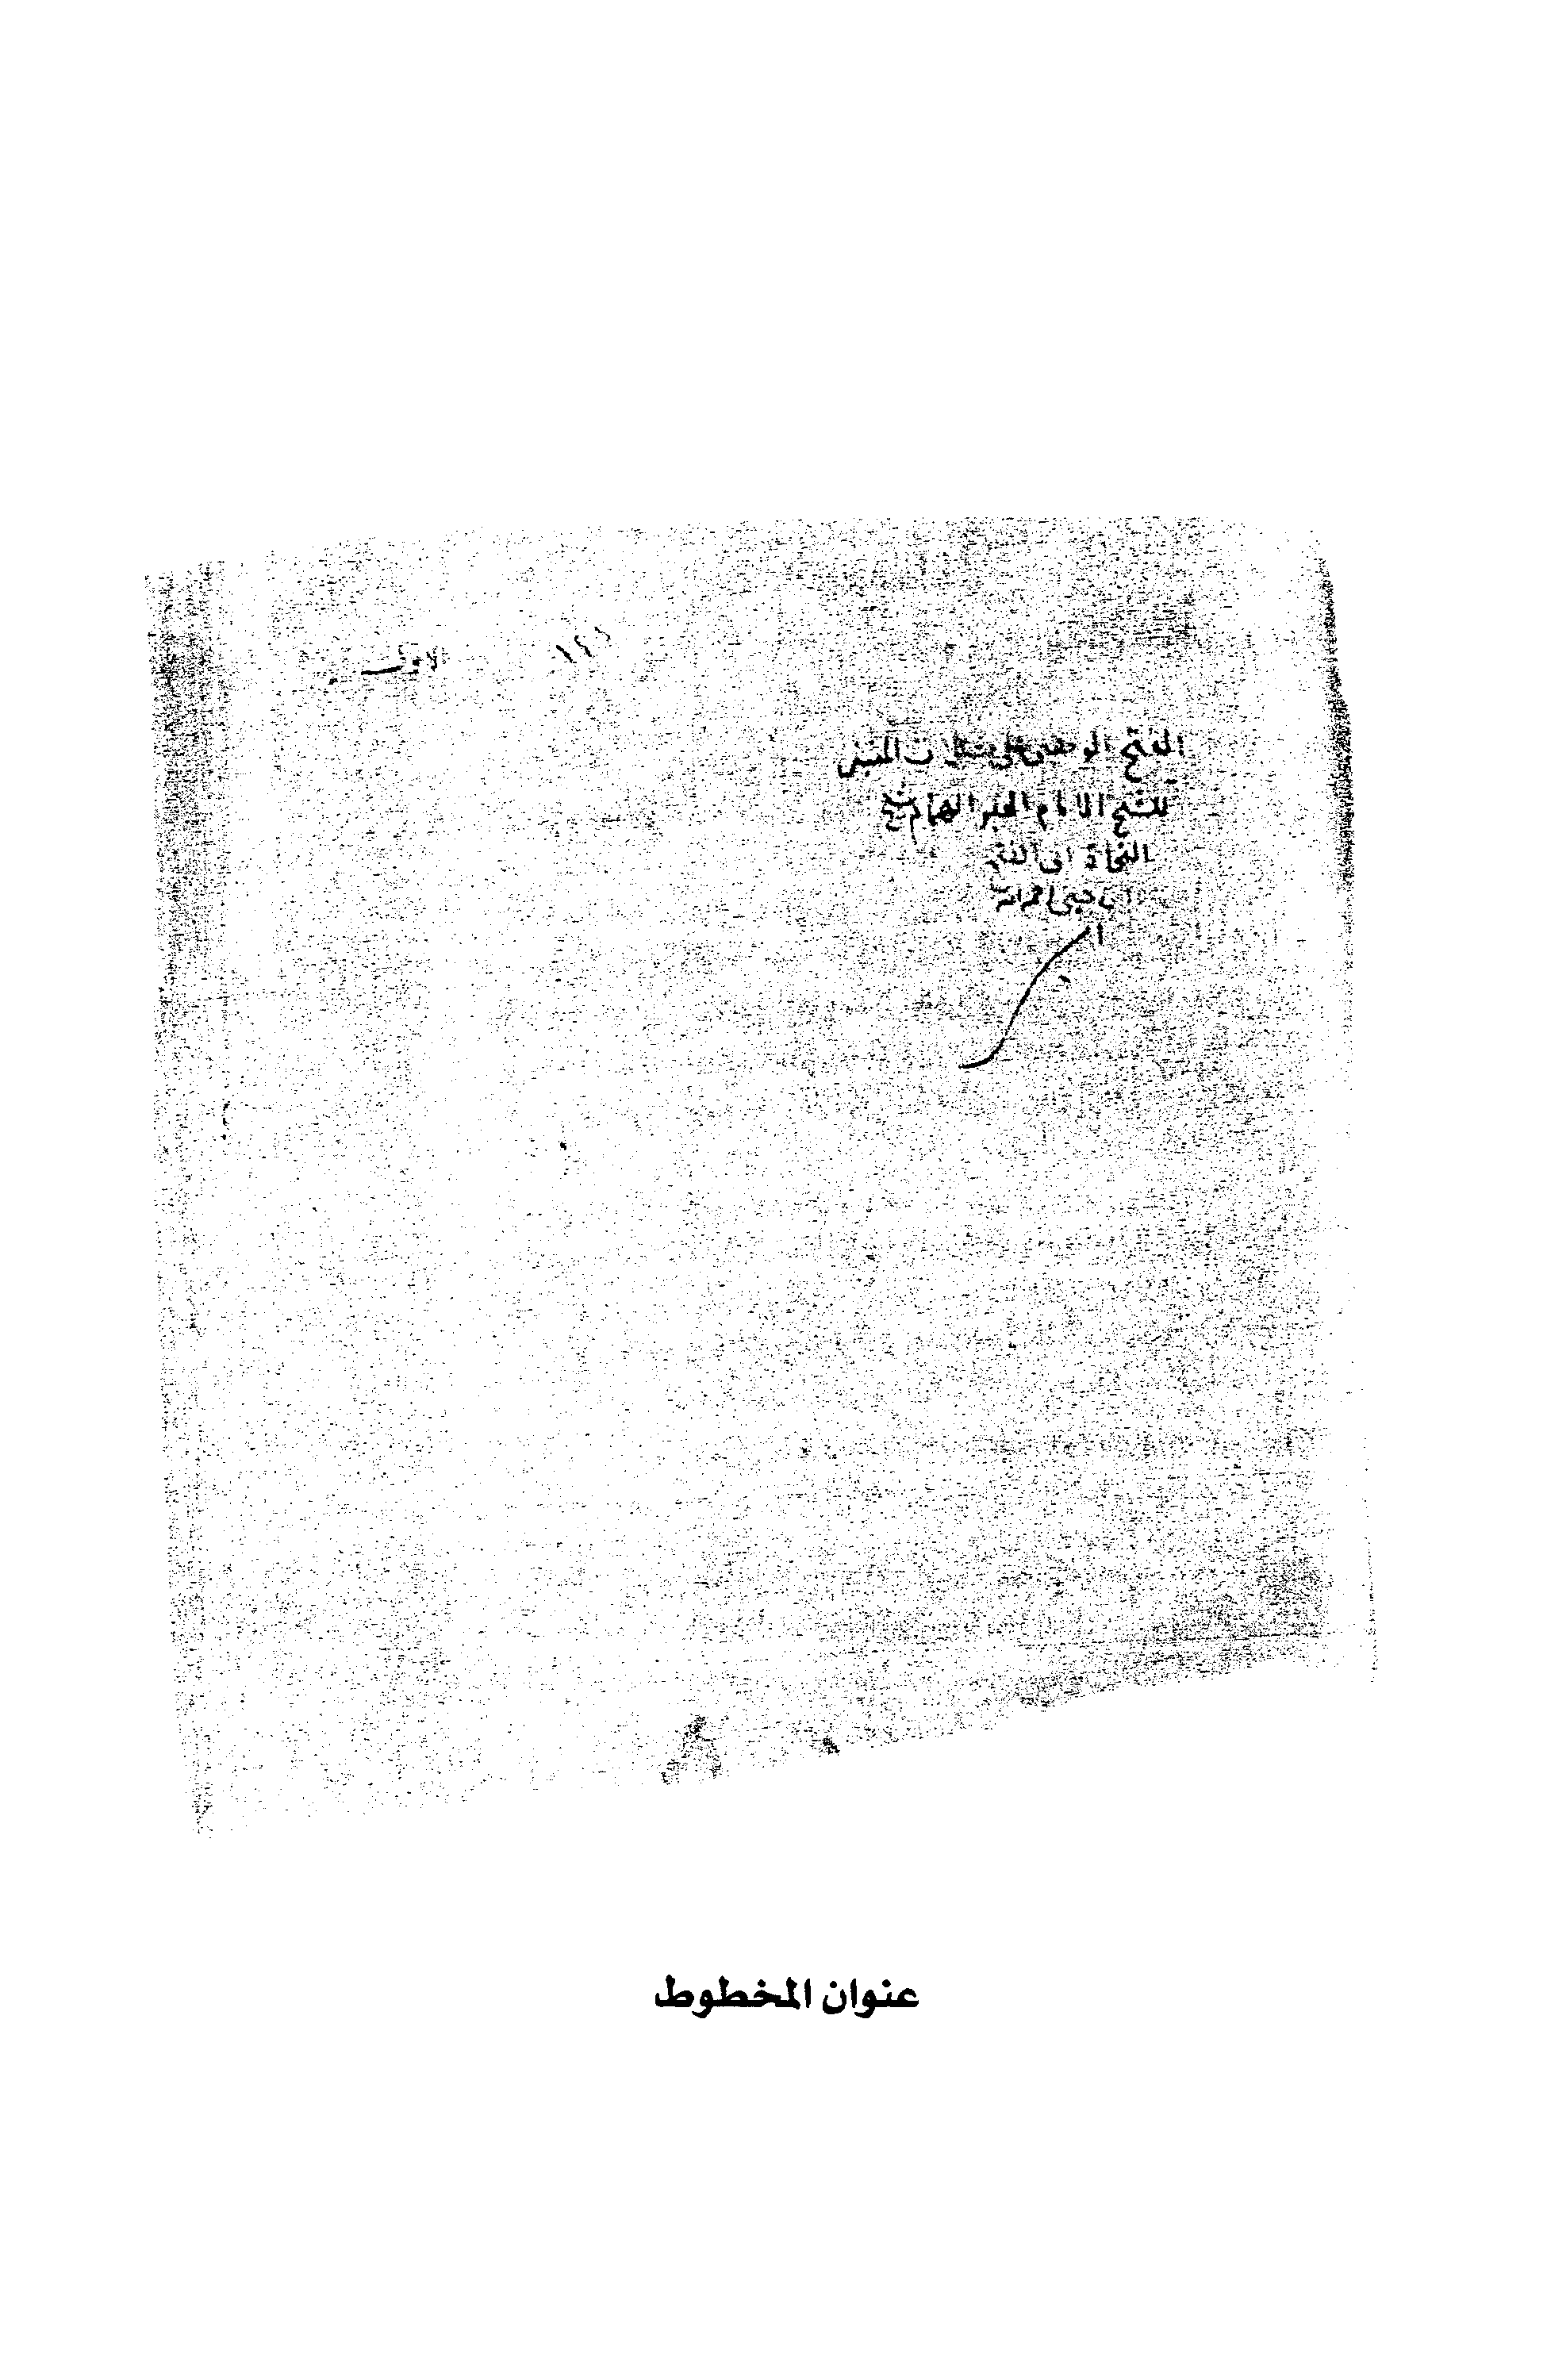 الفتح الوهبي على مشكلات المتنبي
للشيخ الامام الحبر الهمام شيخ
النحاة ابى الفتح
ابن جنى رحمه الله
عنوان المخطوط